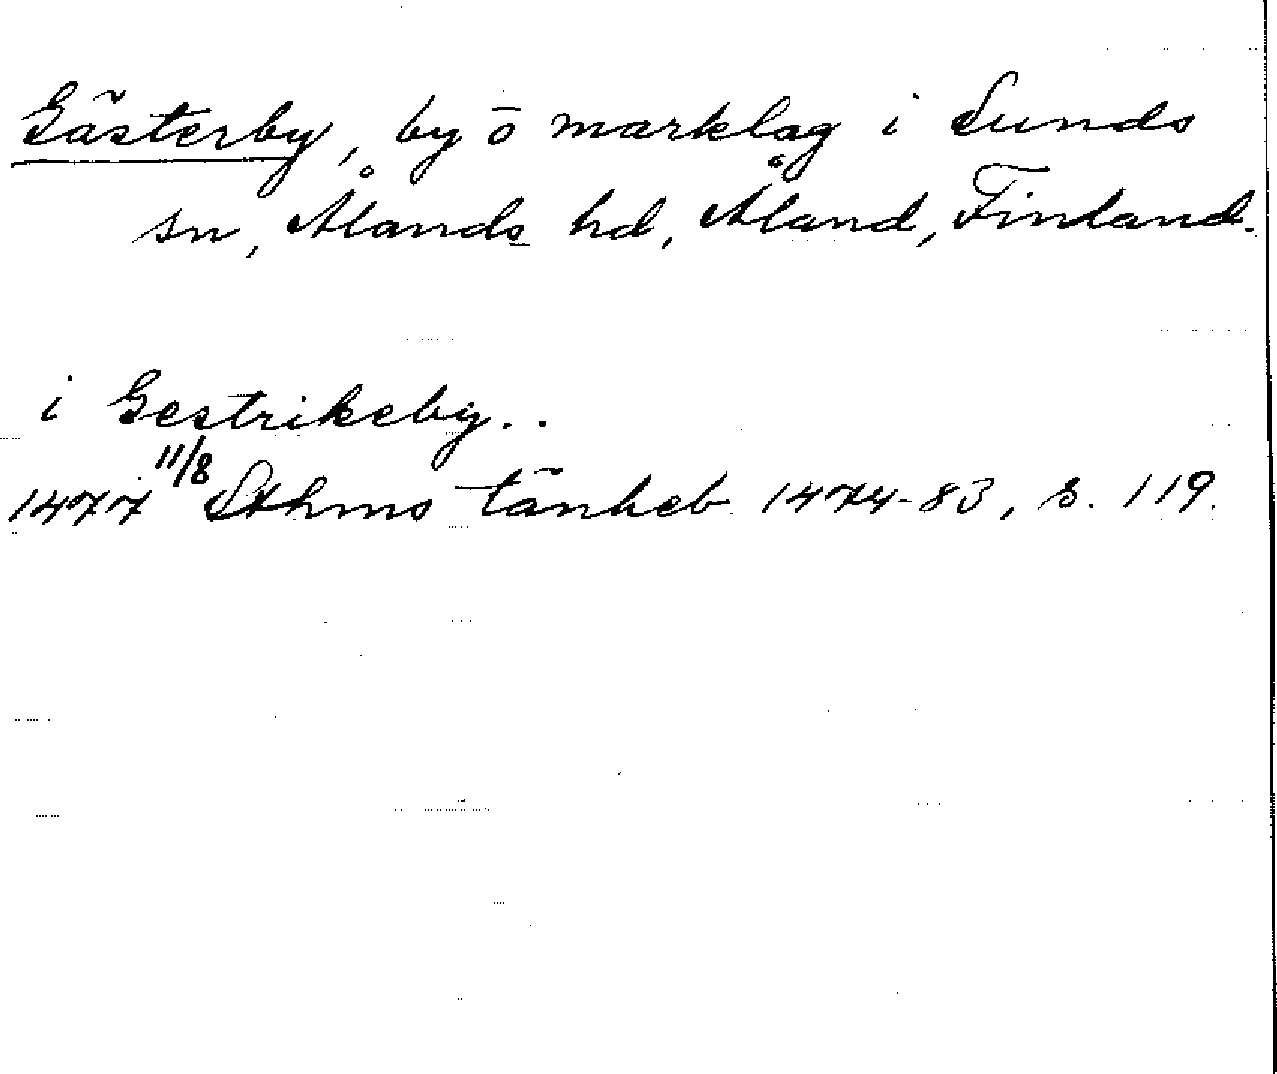 Gästerby, by ō marklag i Sunds
sn, Ålands hd, Åland, Finland.
i Gestrikeby..
1477 11/8 Sthms tänkeb 1474-83, s. 119.